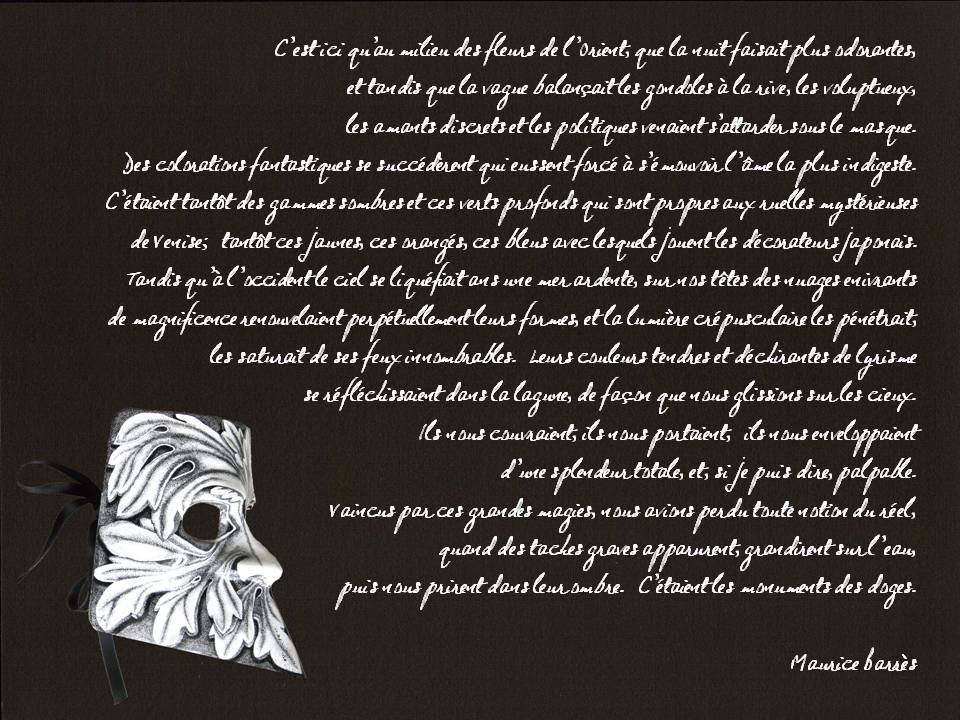 C'est ici qu'au milieu des fleurs de l'Orient, que la nuit faisait plus odorantes,
et tandis que la vague balançait les gondoles à la rive, les voluptueux,
les amants discrets et les politiques venaient s'attarder sous le masque.
Des colorations fantastiques se succédèrent qui eussent forcé à s'émouvoir l'âme la plus indigeste.
C'étaient tantôt des gammes sombres et ces verts profonds qui sont propres aux ruelles mystérieuses
de Venise; tantôt ces jaunes, ces orangés, ces bleus avec lesquels jouent les décorateurs japonais.
Tandis qu'à l'occident le ciel se liquéfiait ans une mer ardente, sur nos têtes des nuages enivrants
de magnificence renouvelaient perpétuellement leurs formes, et la lumière crépusculaire les pénétrait,
les saturait de ses feux innombrables. Leurs couleurs tendres et déchirantes de lyrisme
se réfléchissaient dans la lagune, de façon que nous glissions sur les cieux.
Ils nous couvraient, ils nous portaient, ils nous enveloppaient
d'une splendeur totale, et, si je puis dire, palpable.
Vaincus par ces grandes magies, nous avions perdu toute notion du réel,
quand des taches graves apparurent, grandirent sur l'eau,
puis nous prirent dans leur ombre. C'étaient les monuments des doges.
Maurice barrès